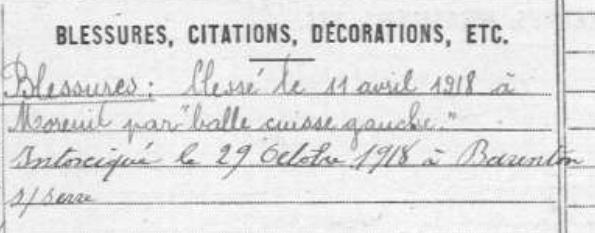 BLESSURES, CITATIONS, DÉCORATIONS, ETC.
Blessures: blessé le 11 avril 1918 à
Moreuil par "balle cuisse gauche."
Intoxiqué le 29 Octobre 1918 à Barenton
s/ Serre